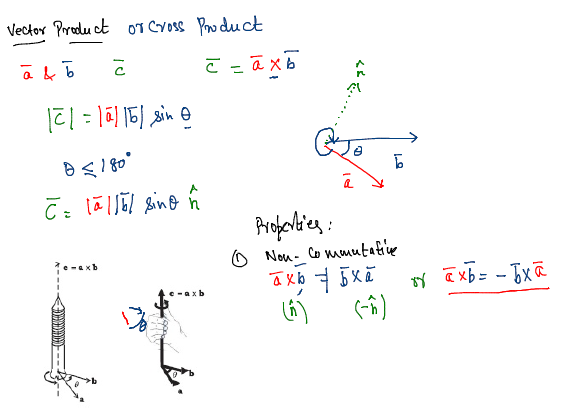 Vector Product or Cross Product
a̅ & b̅ c̅ c̅ = a̅ × b̅
|c̅| = |a̅| |b̅| sin θ
θ ≤ 180°
c̅ = |a̅| |b̅| sinθ n̂
n̂
θ
b̅
a̅
Properties:
① Non-Commutative
a̅×b̅ ≠ b̅×a̅ or a̅×b̅ = - b̅×a̅
(n̂) (-n̂)
c = a × b
θ
b
a
c = a × b
θ
θ
b
a